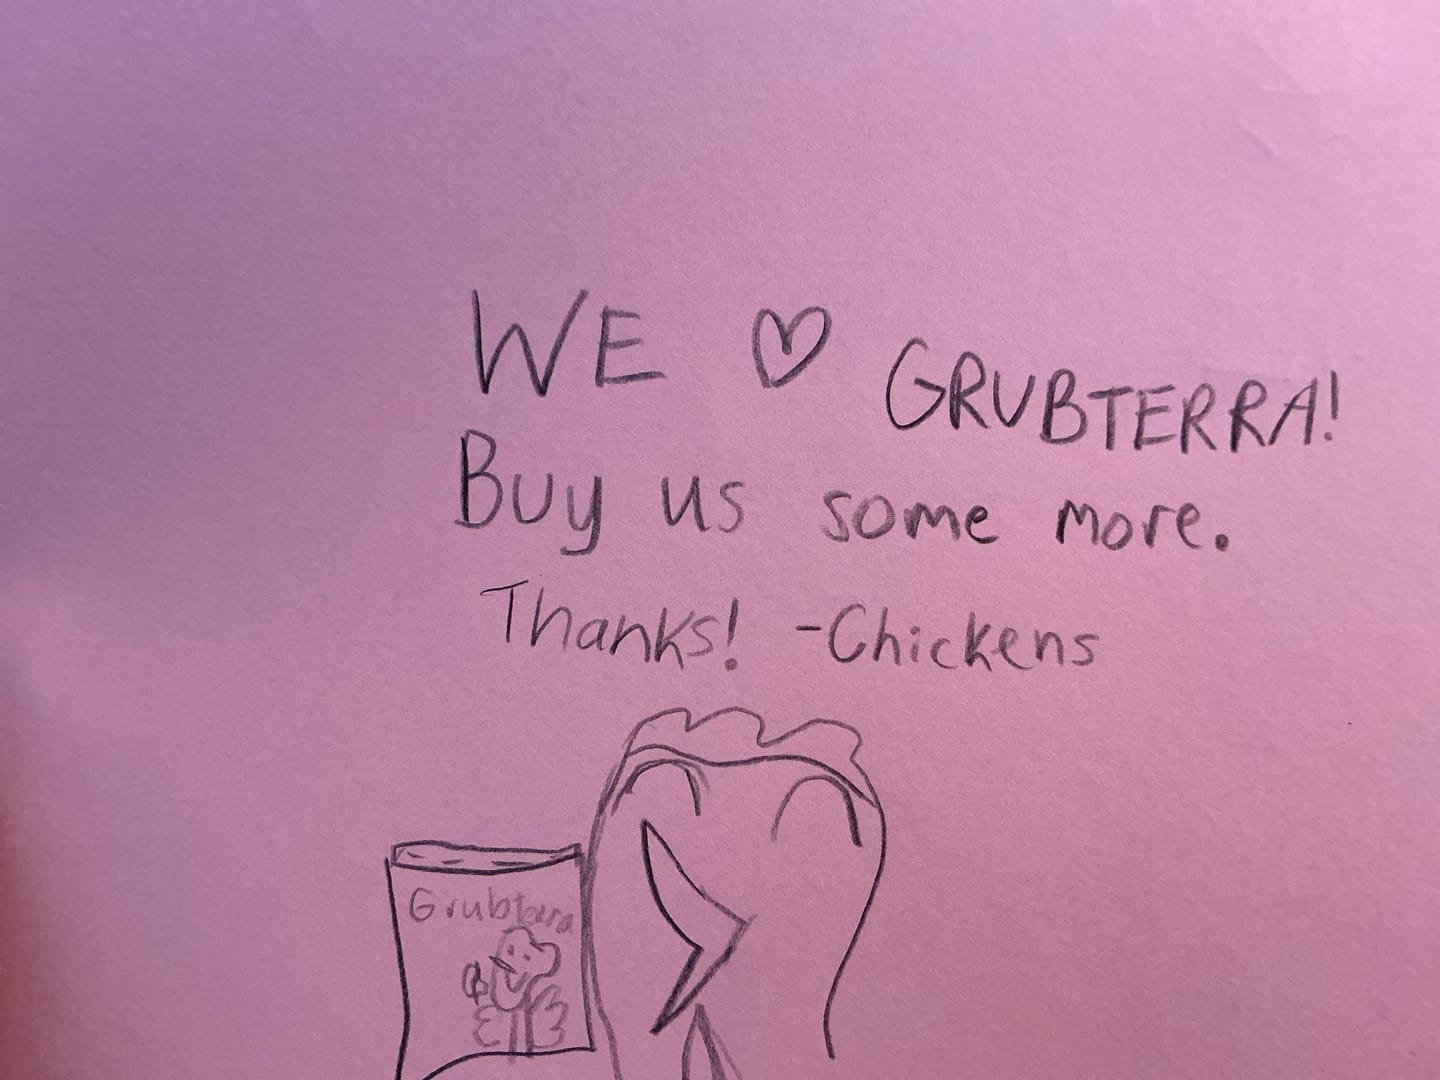 WE ♡ GRUBTERRA!
Buy us some more.
Thanks! -Chickens
Grubterra